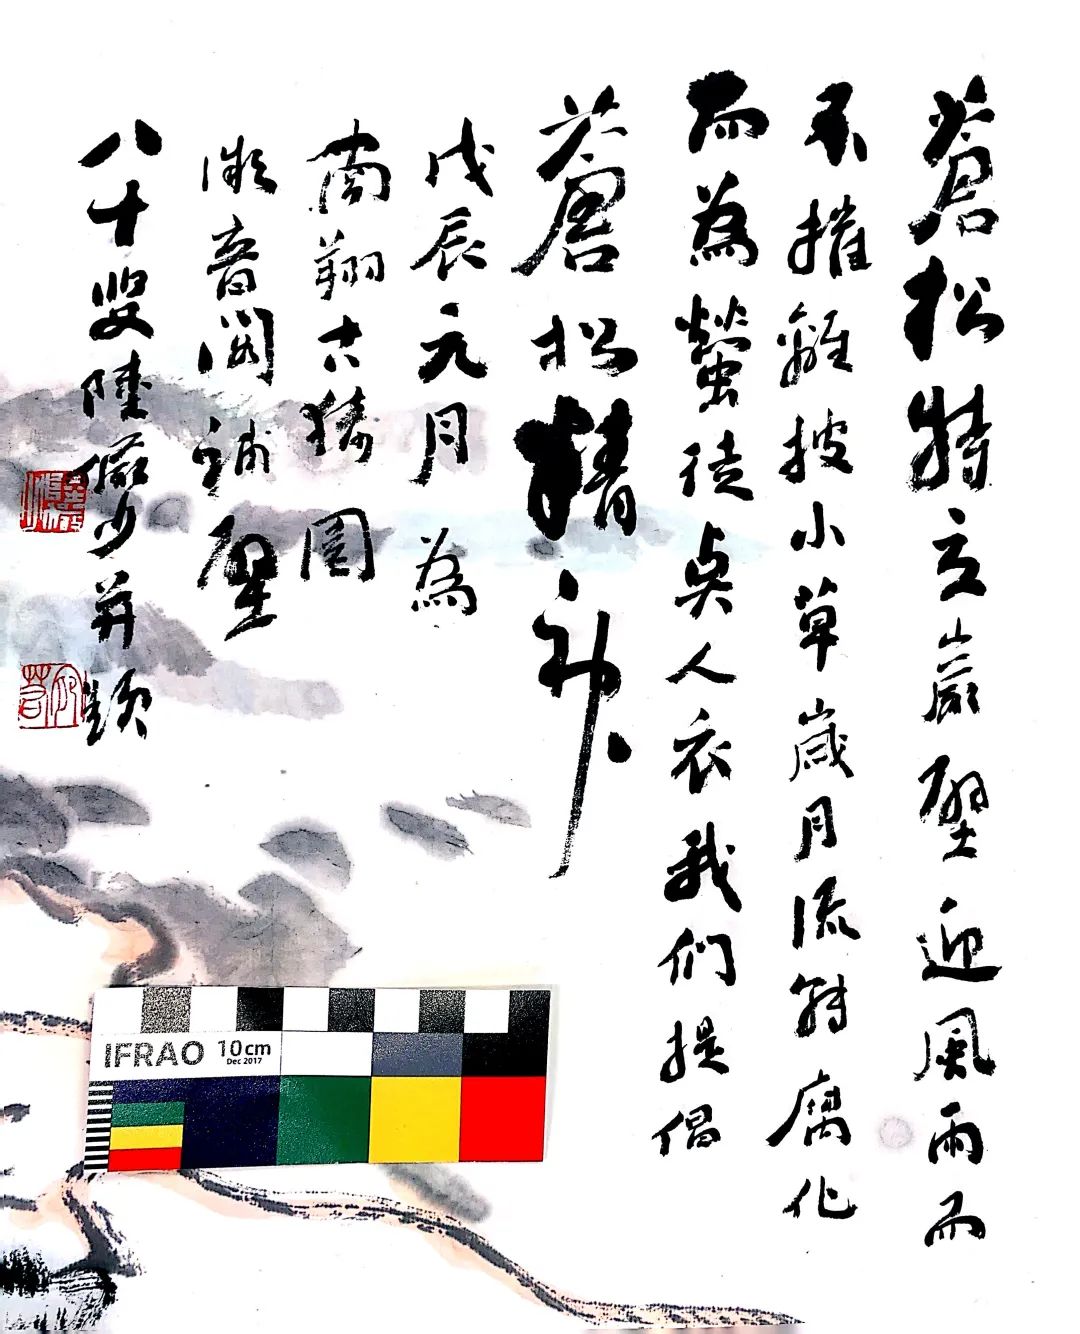 蒼松特立巖壁迎風雨而
不摧離披小草歲月流轉腐化
而為螢徒点人衣我們提倡
蒼松精神
戊辰元月為
南翔古猗園
微音閣補壁
八十叟陸儼少并題
IFRAO 10cm
Dec 2017